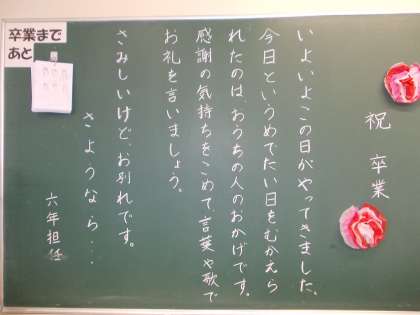 祝 卒業
いよいよこの日がやってきました。
今日というめでたい日をむかえら
れたのは、おうちの人のおかげです。
感謝の気持ちをこめて、言葉や歌で
お礼を言いましょう。
さみしいけど、お別れです。
さようなら...
六年担任
卒業まで
あと